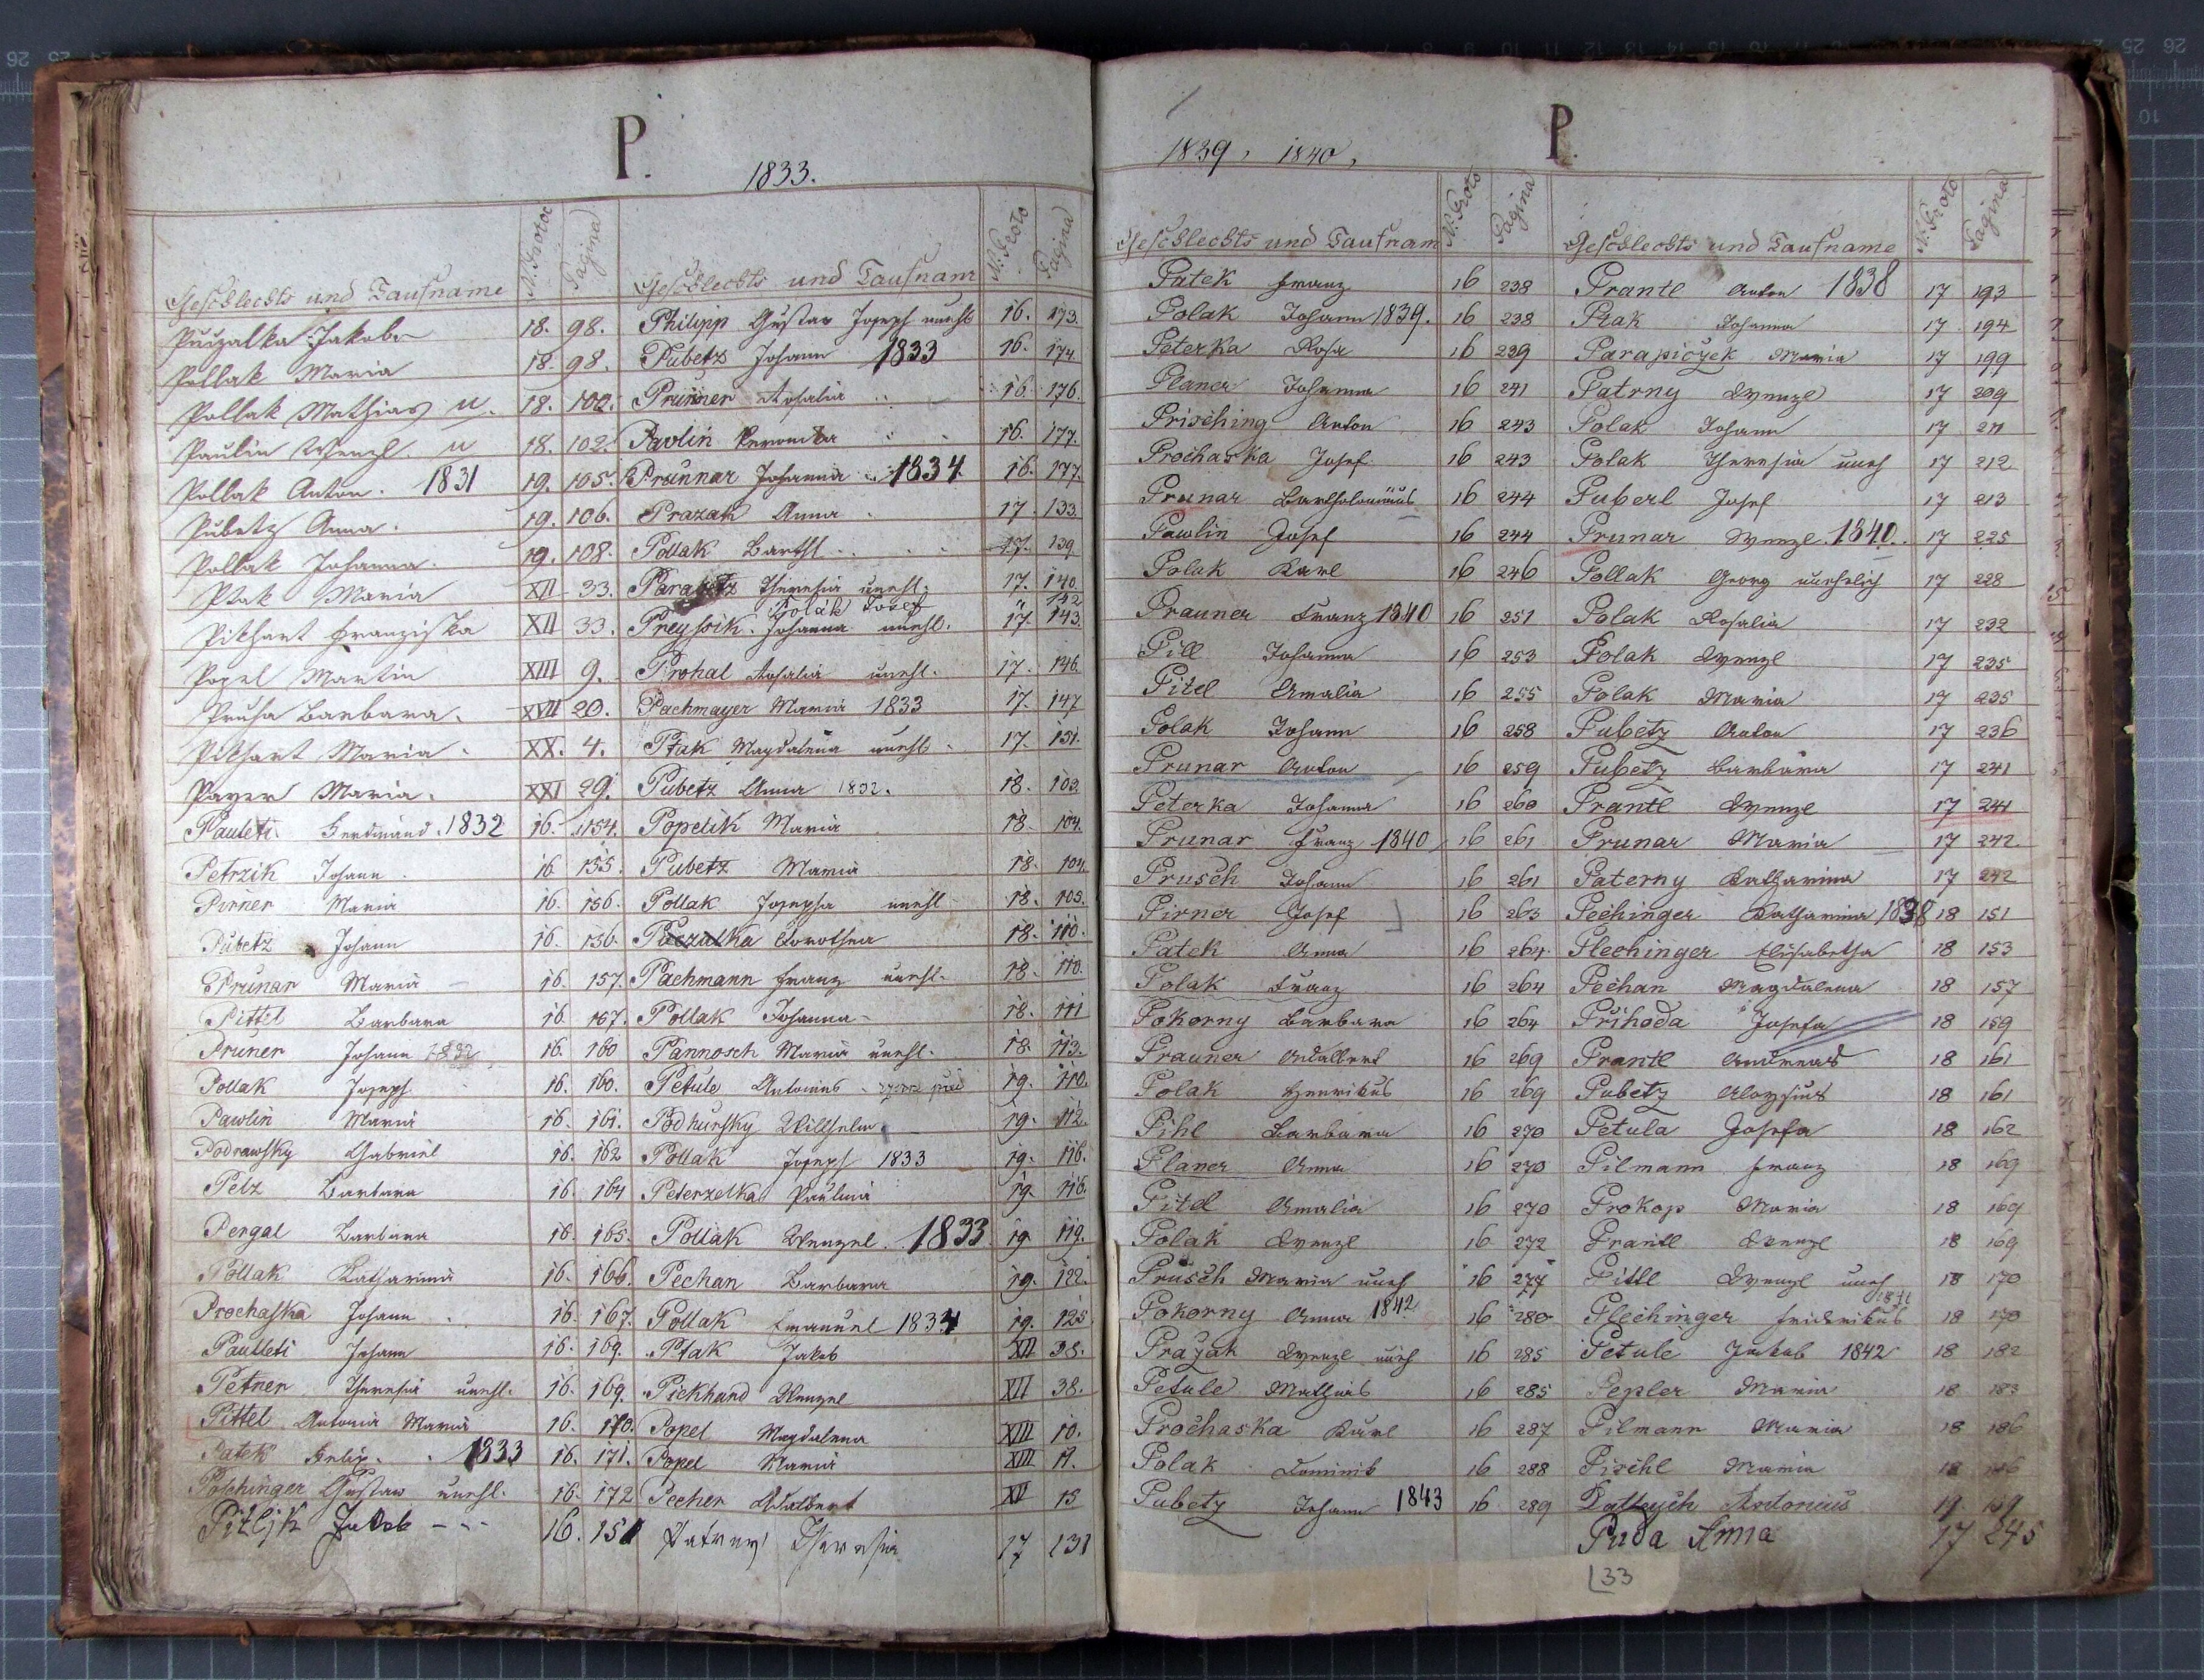 P.
1833.
Geschlechts und Taufname N. Protoc Pagina
Puizalka Jakob 18. 98.
Pollak Maria 18. 98.
Pollak Mathias u. 18. 102.
Paulin Wenzl. u 18. 102.
Pollak Anton. 1831 19. 105.
Pubetz Anna. 19. 106.
Pollak Johanna. 19. 108.
Ptak Maria XII 33.
Pikhart Franziska XII 33.
Popel Martin XIII 9.
Prusa Barbara. XVII 20.
Pikhart Maria. XX. 4.
Payer Maria. XXI 29.
Pauleti Ferdinand. 1832 16. 154.
Petrzik Johann. 16 155.
Pirner Maria 16. 156.
Pubetz Johann 16. 156.
Prunar Maria 16. 157.
Pittel Barbara 16. 157.
Pruner Johann 1832 16. 160
Pollak Joseph 16. 160.
Pawlin Maria 16. 161.
Podrawsky Gabriel 16. 162
Pelz Barbara 16. 164
Pergal Barbara 16. 165.
Pollak Katharina 16. 166.
Prochaska Johann 16. 167.
Pautleti Johann 16. 169.
Petner Theresia unehl. 16. 169.
Pittel Antonia Maria 16. 170.
Patek Felix. 1833 16. 171.
Poschinger Gustaw unehl. 16. 172
Pitljk Jakob - - - 16. 151
Geschlechts und Taufnam N. Proto Pagina
Philipp Gustav Joseph unehl 16. 173.
Pubetz Johann 1833 16. 174
Prunner Rosalia 16. 176.
Pavlin Veronika 16. 177.
Prunnar Johanna 1834 16. 177.
Prazak Anna 17. 133.
Pollak Barthl 17. 139
Parapetz Theresia unehl. 17. 140
Polák Josef " 142
Preyssik. Johanna unehl. 17. 143.
Prohal Rosalia unehl. 17. 146.
Pachmayer Maria 1833 17. 147
Ptak Magdalena unehl. 17. 151.
Pubetz Anna 1832. 18. 103
Popelik Maria 18. 104.
Pubetz Maria 18. 104.
Pollak Josepha unehl 18. 105.
Puczalka Dorothea 18. 110.
Pachmann Franz unehl. 18. 110.
Pollak Johanna 18. 111
Pannosch Maria unehl. 18. 113.
Petule Antonius 19. 110.
Podhursky Willhelm 19. 112.
Pollak Joseph 1833 19. 116.
Peterzelka Paulina 19. 116.
Pollak Wenzel. 1833 19. 119.
Pechan Barbara 19. 122.
Pollak Emanuel 1834 19. 125
Ptak Jakob XII 38.
Piekhard Wenzel XII 38.
Popel Magdalena XIII 10.
Popel Maria XIII 11.
Pecher Adalbert XV 13
Patrny Theresia 17 131
1839, 1840,
P.
Geschlechts und Taufnam N. Proto Pagina
Patek Franz 16 238
Polak Johann 1839. 16 238
Peterka Rosa 16 239
Planer Johanna 16 241
Prisching Anton 16 243
Prochaska Josef 16 243
Prunar Bartholomäus 16 244
Pawlin Josef 16 244
Polak Karl 16 246
Prauner Franz 1840 16 251
Pill Johanna 16 253
Pitel Amalia 16 255
Polak Johann 16 258
Prunar Anton 16 259
Peterka Johanna 16 260
Prunar Franz 1840 16 261
Prusch Johann 16 261
Pirner Josef 16 263
Patek Anna 16 264
Polak Franz 16 264
Pokorny Barbara 16 264
Prauner Adalbert 16 269
Polak Henrikus 16 269
Pihl Barbara 16 270
Planer Anna 16 270
Pitel Amalia 16 270
Polak Wenzl 16 272
Prusch Maria uneh 16 277
Pokorny Anna 1842 16 280
Prazak Wenzl uneh 16 285
Petule Mathias 16 285
Prochaska Karl 16 287
Polak Dominik 16 288
Pubetz Johann 1843 16 289
Geschlechts und Taufname N. Proto Pagina
Prantl Anton 1838 17 193
Ptak Johanna 17 194
Parapiczek Maria 17 199
Patrny Wenzl 17 209
Polak Johann 17 211
Polak Theresia uneh 17 212
Puberl Josef 17 213
Prunar Wenzl. 1840. 17 225
Pollak Georg unehelich 17 228
Polak Rosalia 17 232
Polak Wenzl 17 235
Polak Maria 17 235
Pubetz Anton 17 236
Pubetz Barbara 17 241
Prantl Wenzl 17 241
Prunar Maria 17 242
Paterny Katharina 17 242
Pechinger Katharina 1838 18 151
Plechinger Elisabetha 18 153
Pechan Magdalena 18 157
Přihoda Josefa 18 159
Prantl Andreas 18 161
Pubetz Aloysius 18 161
Petula Josefa 18 162
Pilmann Franz 18 169
Prokop Maria 18 169
Prantl Wenzl 18 169
Pittl Wenzl uneh 18 170
Plechinger Fridrikus 18 170
Petule Jakob 1842 18 182
Pepler Maria 18 183
Pilmann Maria 18 186
Pischl Maria 18 186
Antonius 19. 159
Puda Anna 17 245
33